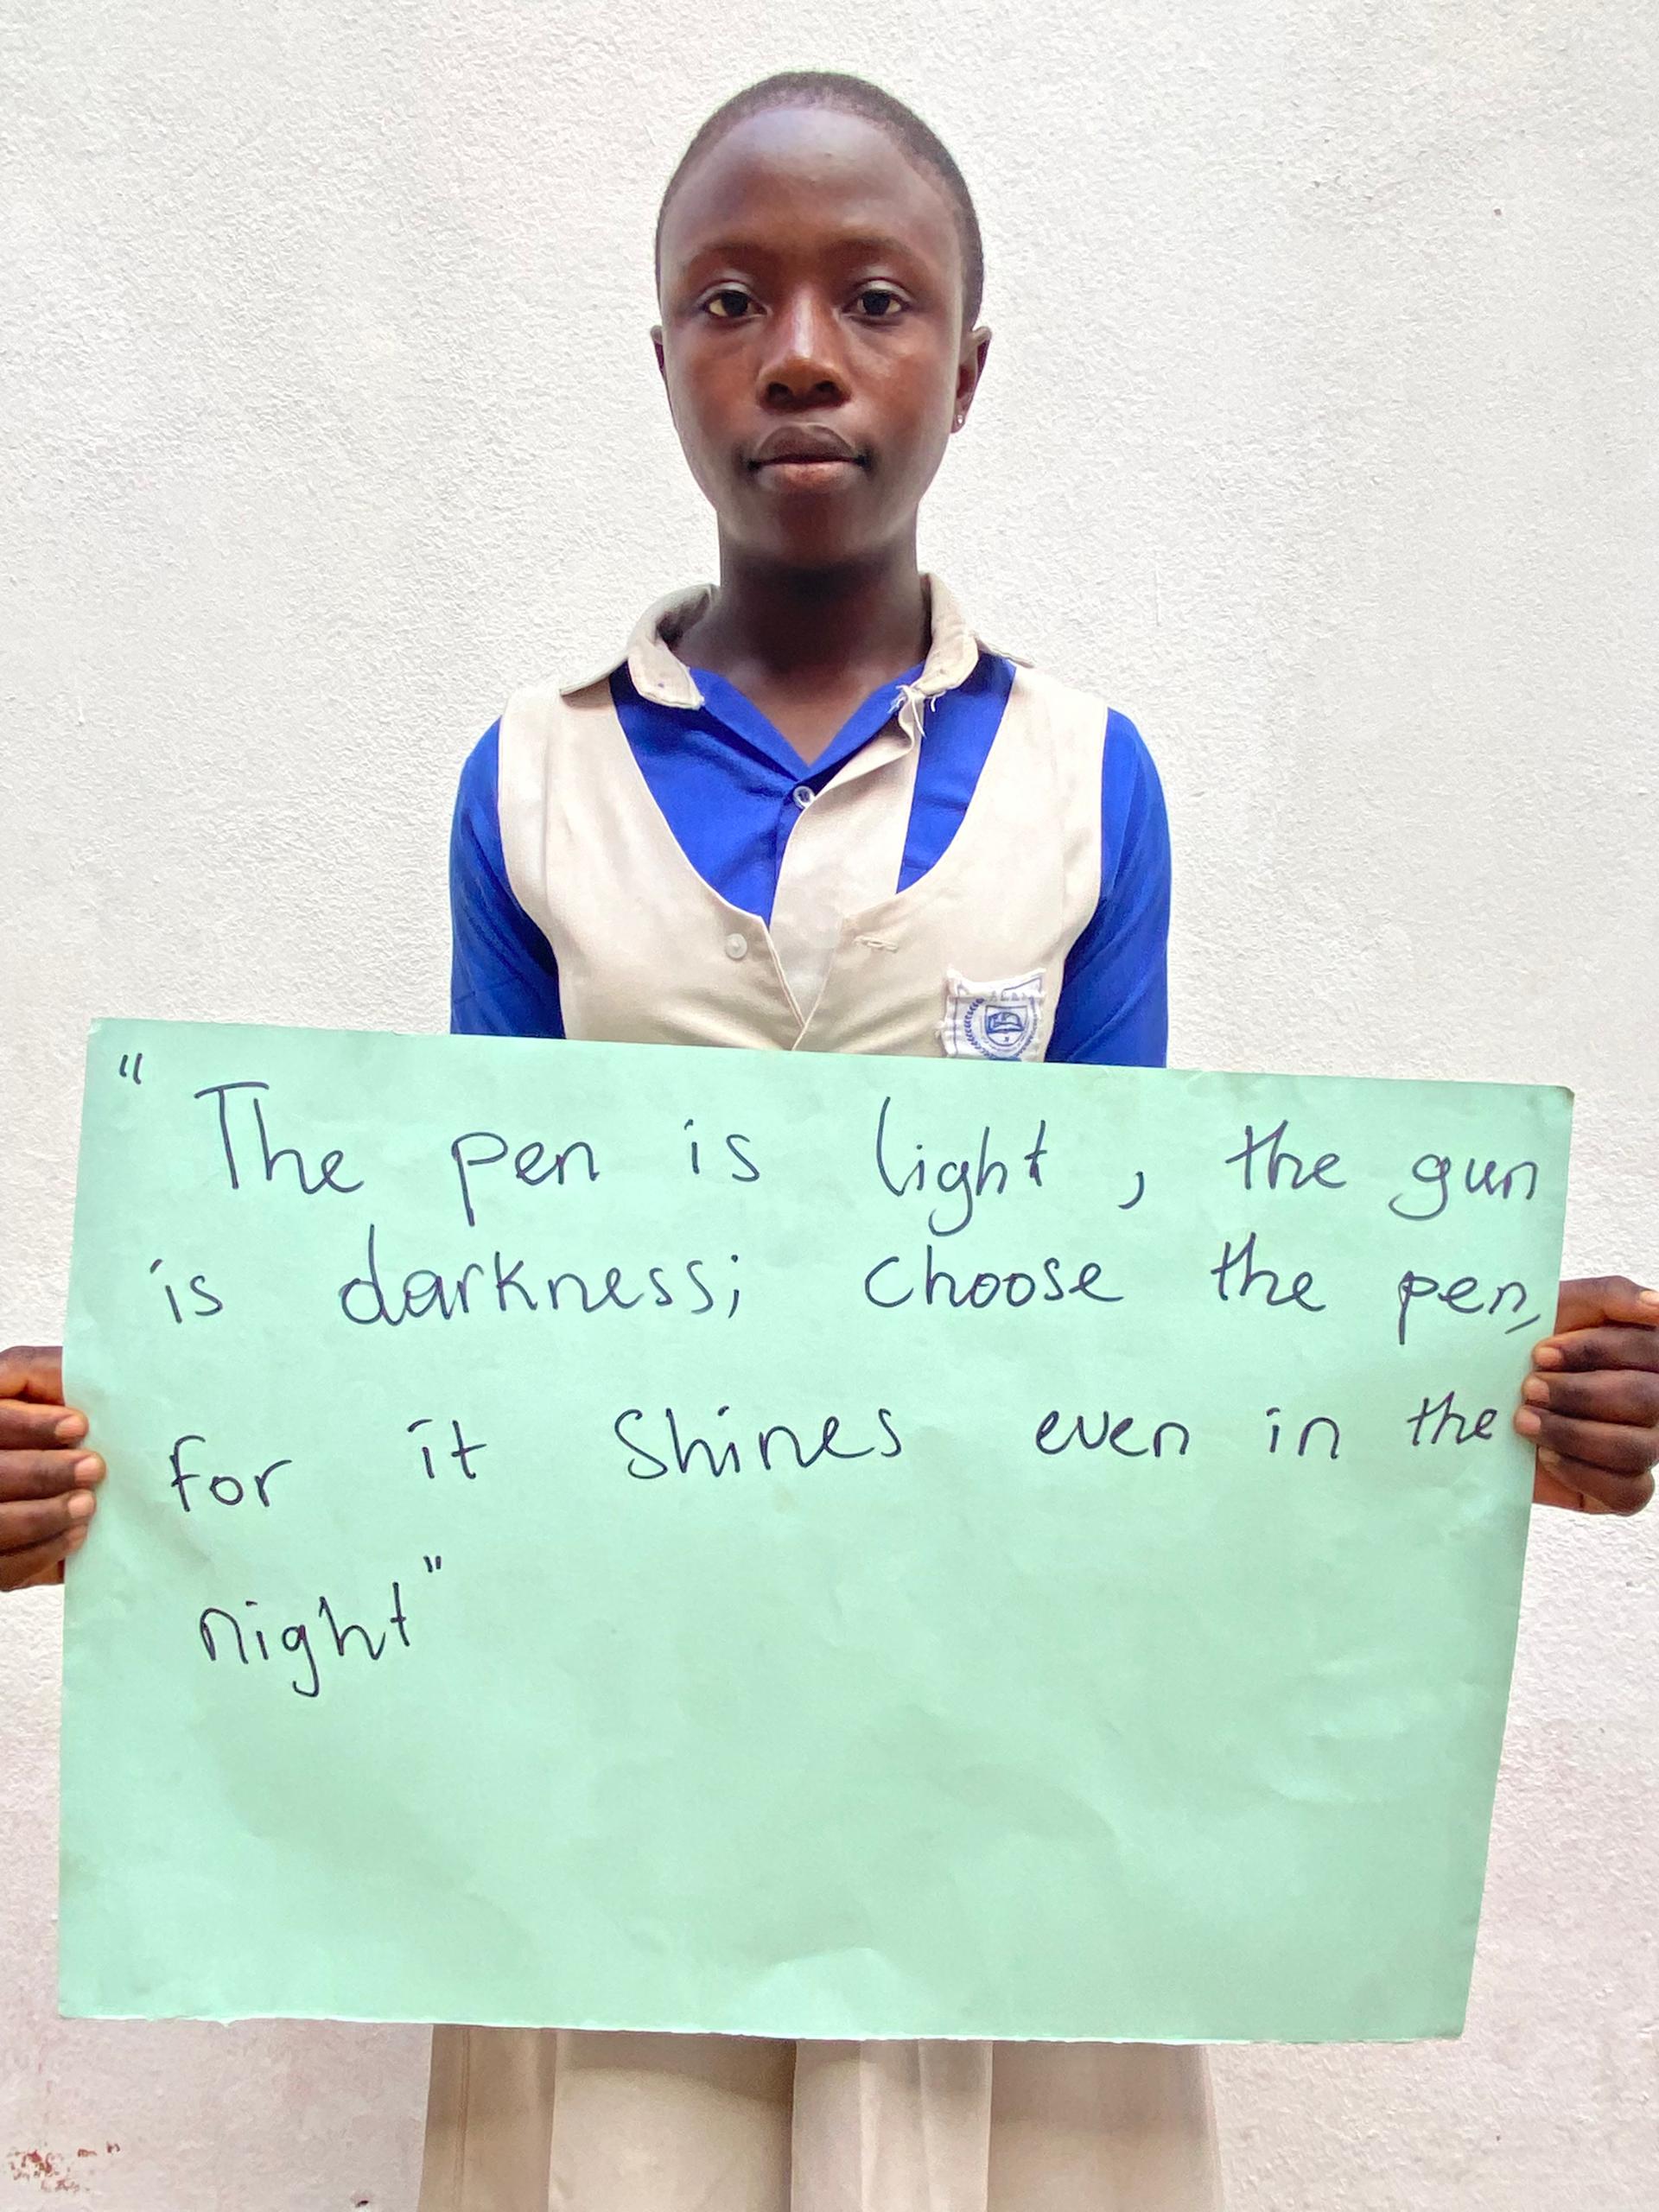 "The pen is light, the gun
is darkness; choose the pen,
for it shines even in the
night"